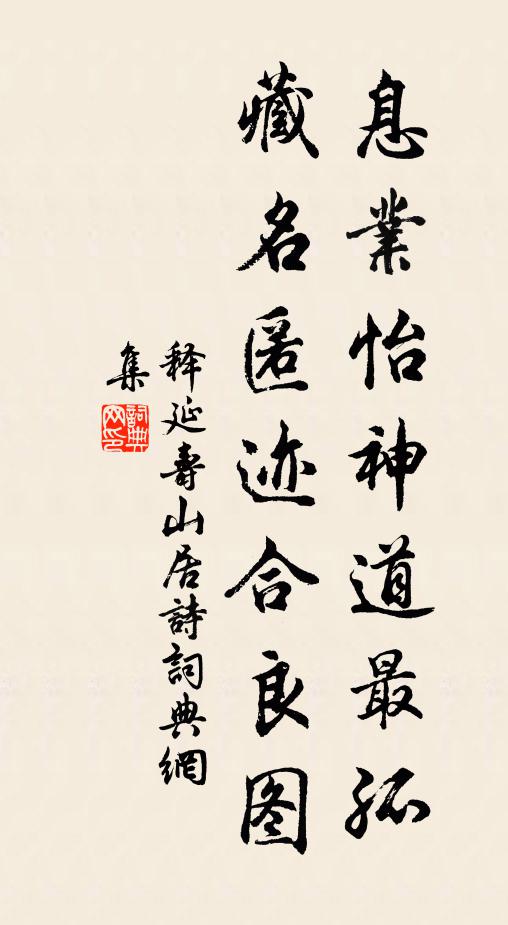 息業怡神道最孤
藏名匿迹合良图
释延壽山居詩詞典網
集
詞典网印